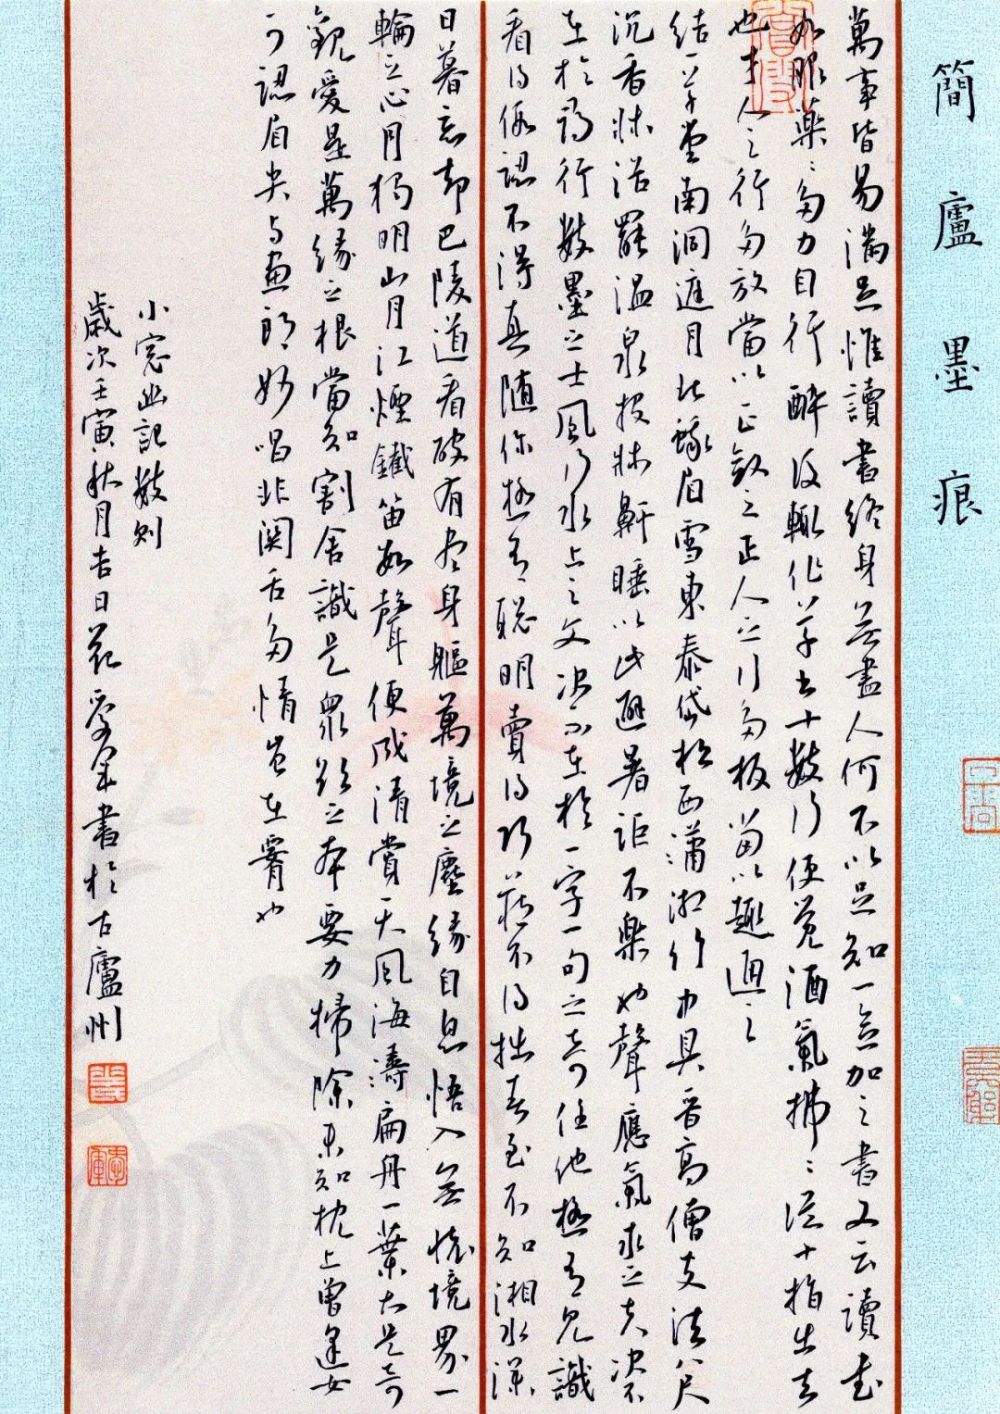 簡廬墨痕
萬事皆易滿足惟讀書終身無盡人何不以足知一念加之書又云讀書
如服藥藥多力自行醉後輒作草書十數行便覺酒氣拂拂從十指出去
也才人之行多放當以正斂之正人之行多板當以趣通之
結一草堂南洞庭月北蛾眉雪東泰岱松西瀟湘竹中具晉高僧支法八尺
沉香牀浴罷溫泉投牀鼾睡以此避暑詎不樂也聲應氣求之夫決不
在於尋行數墨之士風行水上之文決不在於一字一句之奇任他極有見識
看得假認不得真隨你極有聰明賣得巧藏不得拙春至不知湘水深
日暮忘却巴陵道看破有盡身軀萬境之塵緣自息悟入無懷境界一
輪之心月獨明山月江煙鐵笛數聲便成清賞天風海濤扁舟一葉大是奇
觀愛是萬緣之根當知割舍識是眾欲之本要力掃除未知枕上曾逢女
可認眉尖与畫郎妙唱非関舌多情豈在腰也
小窓幽記數則
歲次壬寅秋月吉日於古廬州